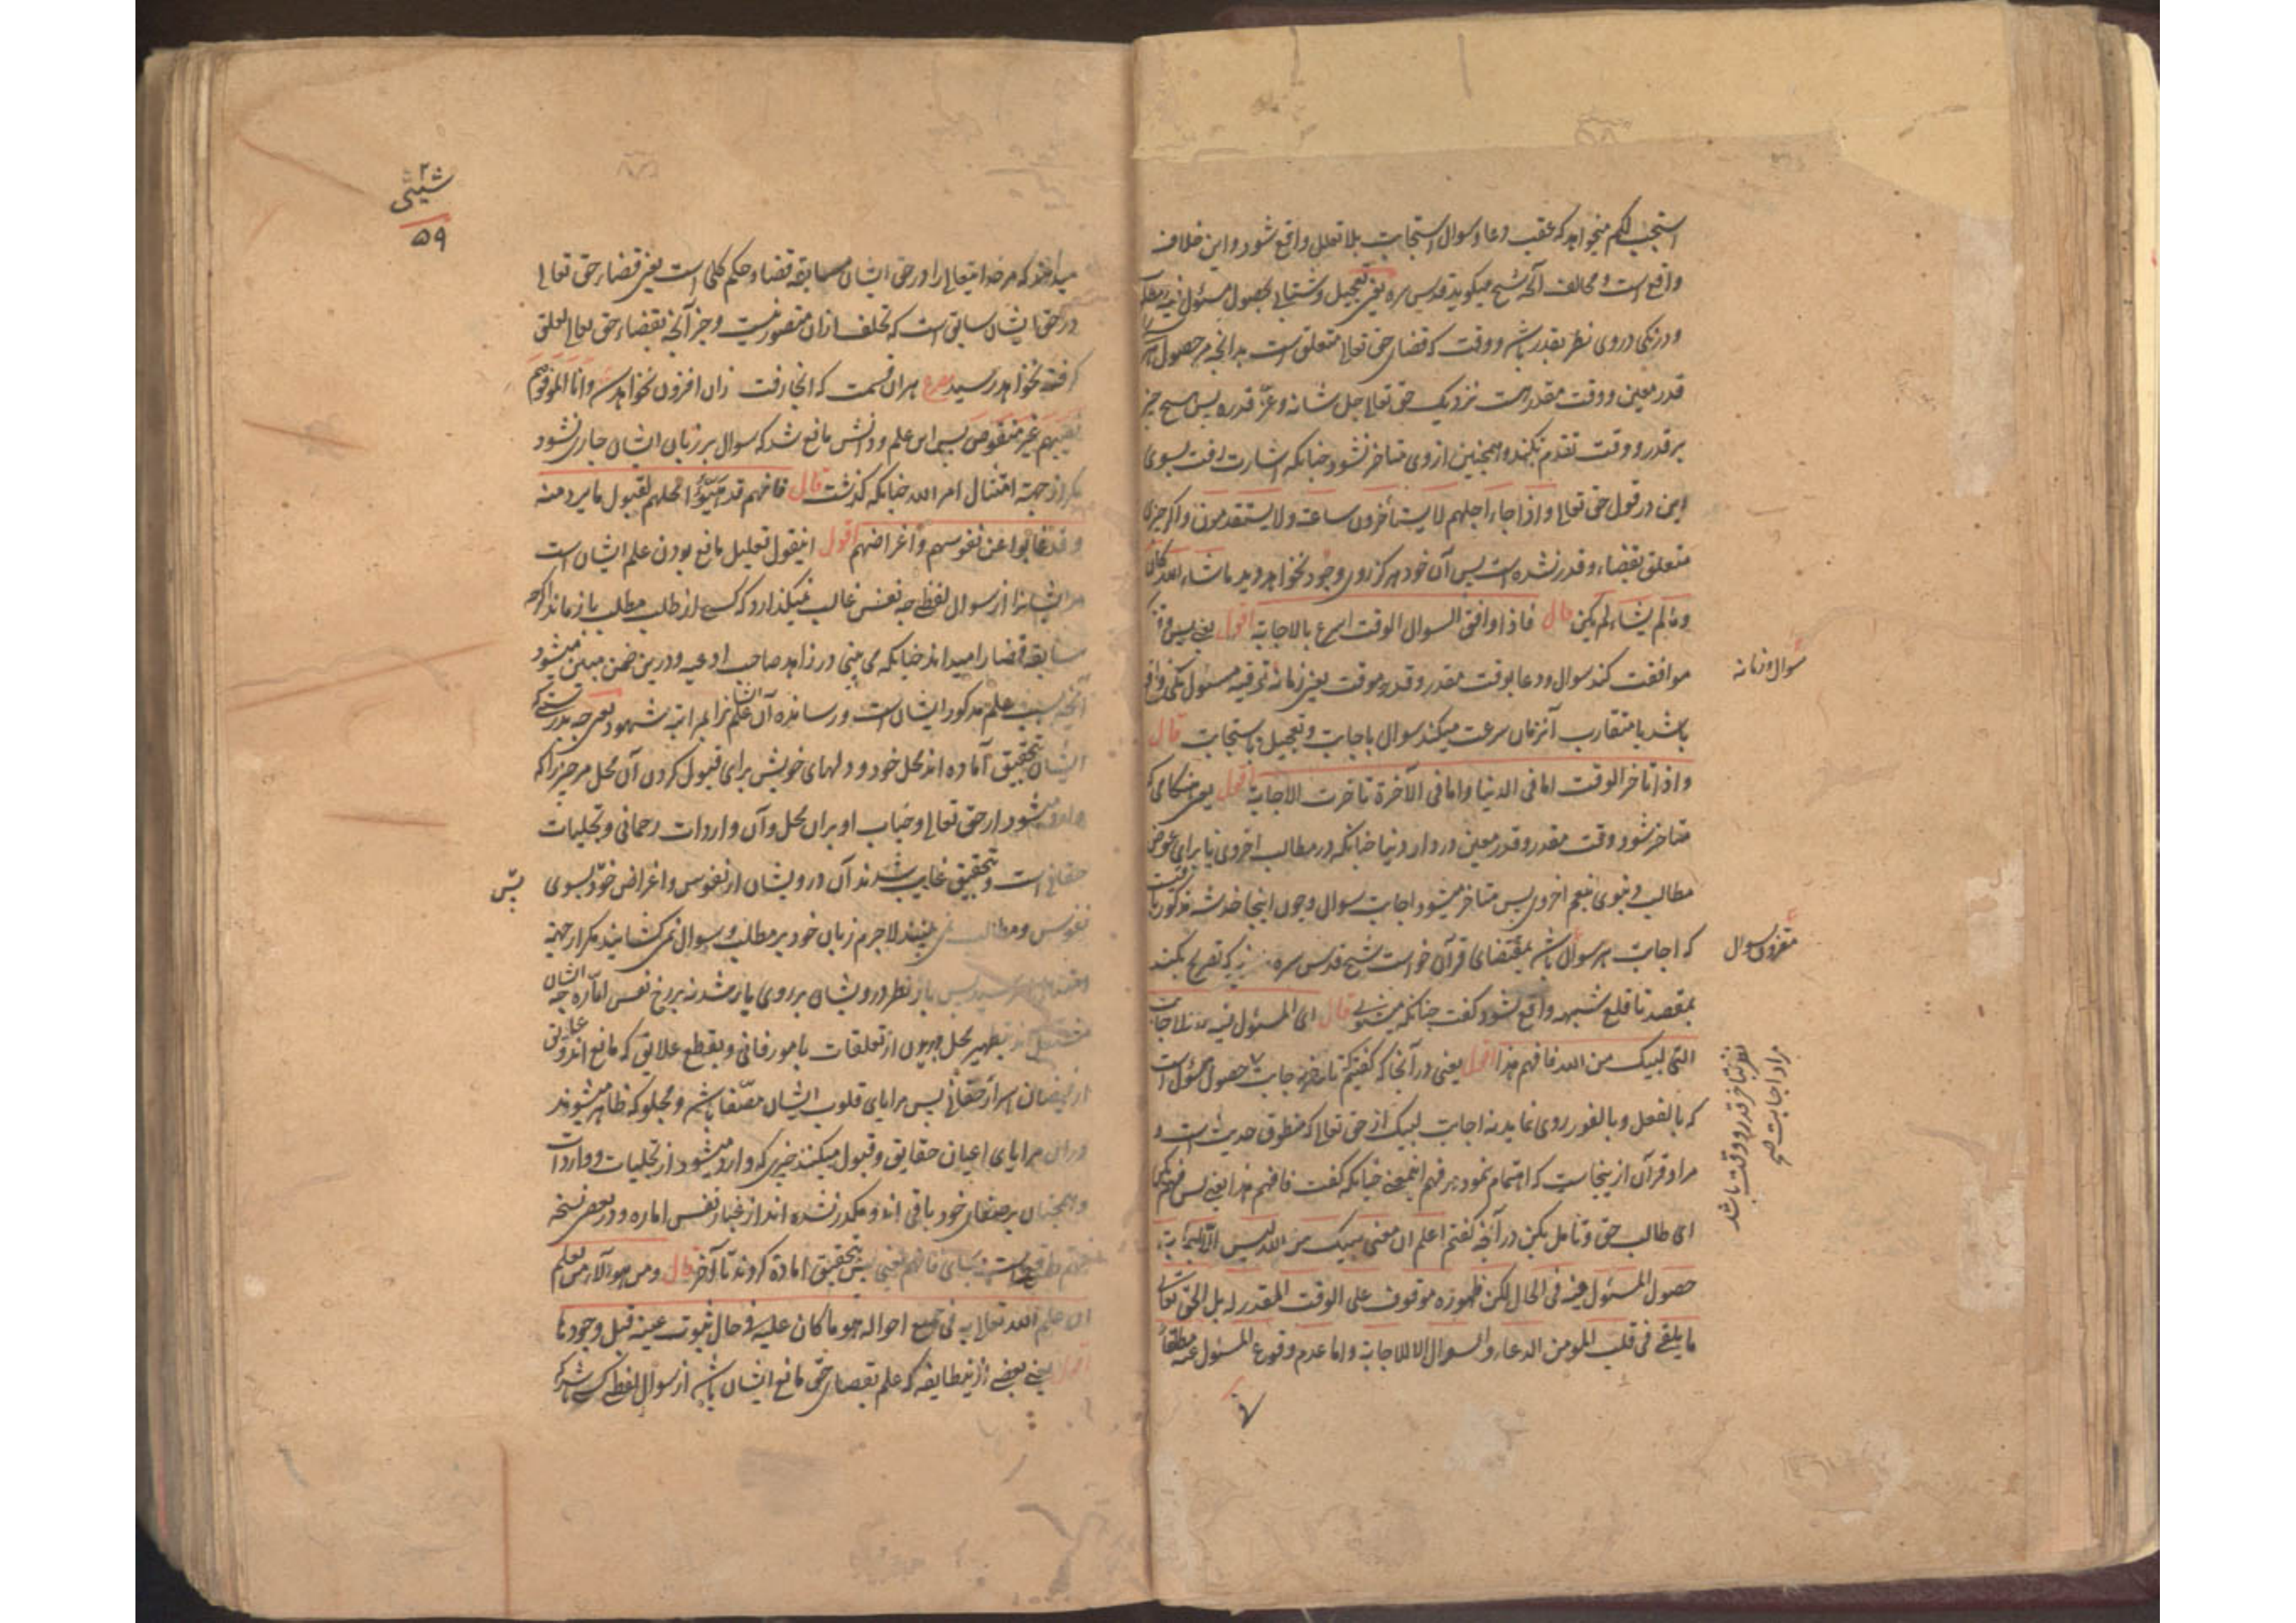 استجب لکم میخواهد که عقب دعا و سوال استجابت بلا تعلل واقع شود و این خلاف
واقع است و مخالف آنچه شیخ میگوید قدس سره یعنی تعجیل و شتابی بحصول مسئول
و درنکی در وی نظر بقدر باشد و وقت که قضای حق تعالی متعلق است بدانچه مر حصول
قدر معین و وقت مقدر است نزدیک حق تعالی جل شانه و عز قدره پس هیچ چیز
بر قدر و وقت تقدم نکند و همچنین از وی متاخر نشود چنانکه اشارت رفت بسوی
این در قول حق تعالی و اذا جاء اجلهم لا یستأخرون ساعة ولا یستقدمون و اکر چیزی
متعلق بقضاء و قدر نشده است پس آن خود هرکز روی وجود نخواهد دید ما شاء الله کان
و ما لم یشاء لم یکن قال فاذا وافق السوال الوقت اسرع بالاجابة اقول یعنی پس
موافقت کند سوال و دعا بوقت مقدر و قدر موقت یعنی زمانه
باشد یا متقارب آنزمان سرعت میکند سوال باجابت و تعجیل باستجابت قال
و اذا تاخر الوقت اما فی الدنیا و اما فی الآخرة تاخرت الاجابة اقول یعنی هنکامی که
متاخر شود وقت مقدر و قدر معین در دار دنیا چنانکه در مطالب اخروی یا برای عوض
مطالب دنیوی بنعم اخروی پس متاخر میشود اجابت سوال و چون اینجا خدشه مذکور
که اجابت هر سوال باشد بمقتضای قرآن خواست شیخ قدس سره که تصریح بکند
بمقصد تا قلع شبهه واقع شود گفت چنانکه میشنوی قال ای المسئول فیه لا الاجابة
التی لبیک من الله فافهم هذا اقول یعنی در آنجا که گفتیم که تاخر اجابت حصول مسئول است
که بالفعل و بالفور روی نماید نه اجابت لبیک از حق تعالی که منطوق حدیث است و
مراد قرآن ازینجاست که اهتمام نمود بر فهم اینمعنی چنانکه گفت فافهم هذا یعنی پس فهم کن
ای طالب حق و تامل بکن در آنچه گفتم اعلم ان معنی لبیک من الله لیس
حصول المسئول فیه فی الحال لکن ظهوره موقوف علی الوقت المقدر له بل الحق تعالی
ما یلقی فی قلب المومن الدعاء و السوال الا للاجابة و اما عدم وقوع المسئول عنه مطلقا
سوال و زمانه
مقرون سوال
مراد اجابت
نظر بتاخر قدر و وقت باشد
شیثی
۵۹
میدانند که مر خدایتعالی را در حق ایشان سابقه قضا و حکم کلی است یعنی قضاء حق تعالی
در حق ایشان سابق است که تخلف از آن متصور نیست و جز آنچه بقضاء حق تعالی تعلق
گرفته نخواهد رسید مصرع هر آن قسمت که آنجا رفت زان افزون نخواهد شد و انا لموفوهم
نصیبهم غیر منقوص پس این علم و دانش مانع شد که سوال بر زبان ایشان جاری نشود
مکر از جهة امتثال امر الله چنانکه کذشت قال فانهم قد هیئوا محلهم لقبول ما یرد منه
و قد غابوا عن نفوسهم و اغراضهم اقول اینقول تعلیل مانع بودن علم ایشان است
مر ایشانرا از سوال لفظی چه نفس غالب نمیکذارد که کسی از طلب مطلب باز ماند اکرچه
سابقه قضا را میداند چنانکه می بینی در زاهد صاحب ادعیه و درین ضمن مبین میشود
آنچه سبب علم مذکور ایشان است و رساننده آن علم
ایشان بتحقیق آماده اند محل خود و دلهای خویش برای قبول کردن آن محل مر چیزی را که
وارد میشود از حق تعالی و جناب او بران محل و آن واردات رحمانی و تجلیات
حقانی است و بتحقیق غایب شدند آن درویشان از نفوس و اغراض خود بسوی
نفوس و مطالب نمی بینند لاجرم زبان خود بر مطلب و سوال نمی کشایند مکر از جهة
پس باز نظر درویشان بر روی یار شد نه بر رخ نفس اماره چه ایشان
بتطهیر محل از تعلقات بامور فانی و بقطع علایق که مانع اند
از فیضان اسرار حقانی پس مرایای قلوب ایشان مصفا باشد و مجلو که ظاهر میشوند
در ان مرایای اعیان حقایق و قبول میکنند چیزی که وارد میشود از تجلیات و واردات
و همچنان بر صفای خود باقی اند و مکدر نشده اند از غبار نفس اماره و در بعض نسخه
یعنی پس بتحقیق آماده کردند تا آخر قال و من هؤلاء من یعلم
ان علم الله تعالی به فی جمیع احواله هو ما کان علیه فی حال ثبوت عینه قبل وجودها
اقول یعنی بعضی ازین طایفه که علم بقضای حق مانع ایشان باشد از سوال لفظی
پس